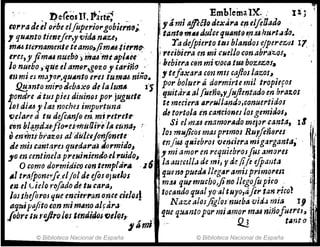 Defensa II. Parte
corra de el orbe el superior gobierno;
y quanto tiene ser, y vida nace,
mas tiernamente te amo, si mas tierno
eres, y si mas niño, mas me aplace
lo niño, que el amor, gozo y cariño
en mi es mayor, quanto eres tu mas niño.
Quanto miro debaxo de la luna 15
pondre a tus pies divinos por juguete
los dias y las noches importuna
velare a tu descanso en mi retrete
con blandas
en dulces braços al dulce sonsonete
de mis cantares quedaras dormido,
yo en centinela preuiniendo el ruido,
O como dormidico contemplàra 16
al trasponerse el sol de esos ojuelos
en el cielo rosado de tu cara,
los thesoros que encierran onze cielos
aqui pasito con mi mano alçàra
sobre tu rostro los tendidos velos,
y à mi
Emblema IX. 12
y à mi affecto dexàra en el sellado
tanto mas dulce quanto mas hurtado.
Ya despierto tus blandos esperezos 17
recibiera en mi cuello con abrazos,
bebiera con mi voca tus bozezos,
y te saxara con mis castos lazos,
por boluer à dormirte mil tropieços
quitàra al sueño, y sustentado en brazos
te meciera arrullando, conuertidos
de tortola en canciones los gemidos,
Si el mas enamorado mejor canta, 18
los musicos mas primos Ruyseñores
en sus quiebros venciera mi garganta,
y mi amor en requiebros sus amores
la auecilla de mi, y de si se espanta
que no pueda llegar à mis primores
mas que mucho, si no llegò su pico
tocando qual yo al tuyo, à ser tan rico?
Naze alos siglos nueba vida mia 19
que quanto por mi amor mas niño fueres,
Q 2 tanto
© Biblioteca Nacional de España
© Biblioteca Nacional de España